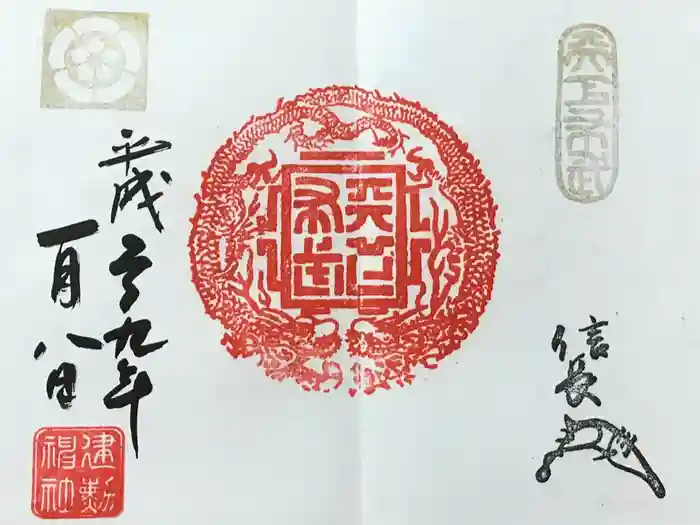 天下布武
天下布武
信長
平成二九年
一月八日
建勲神社